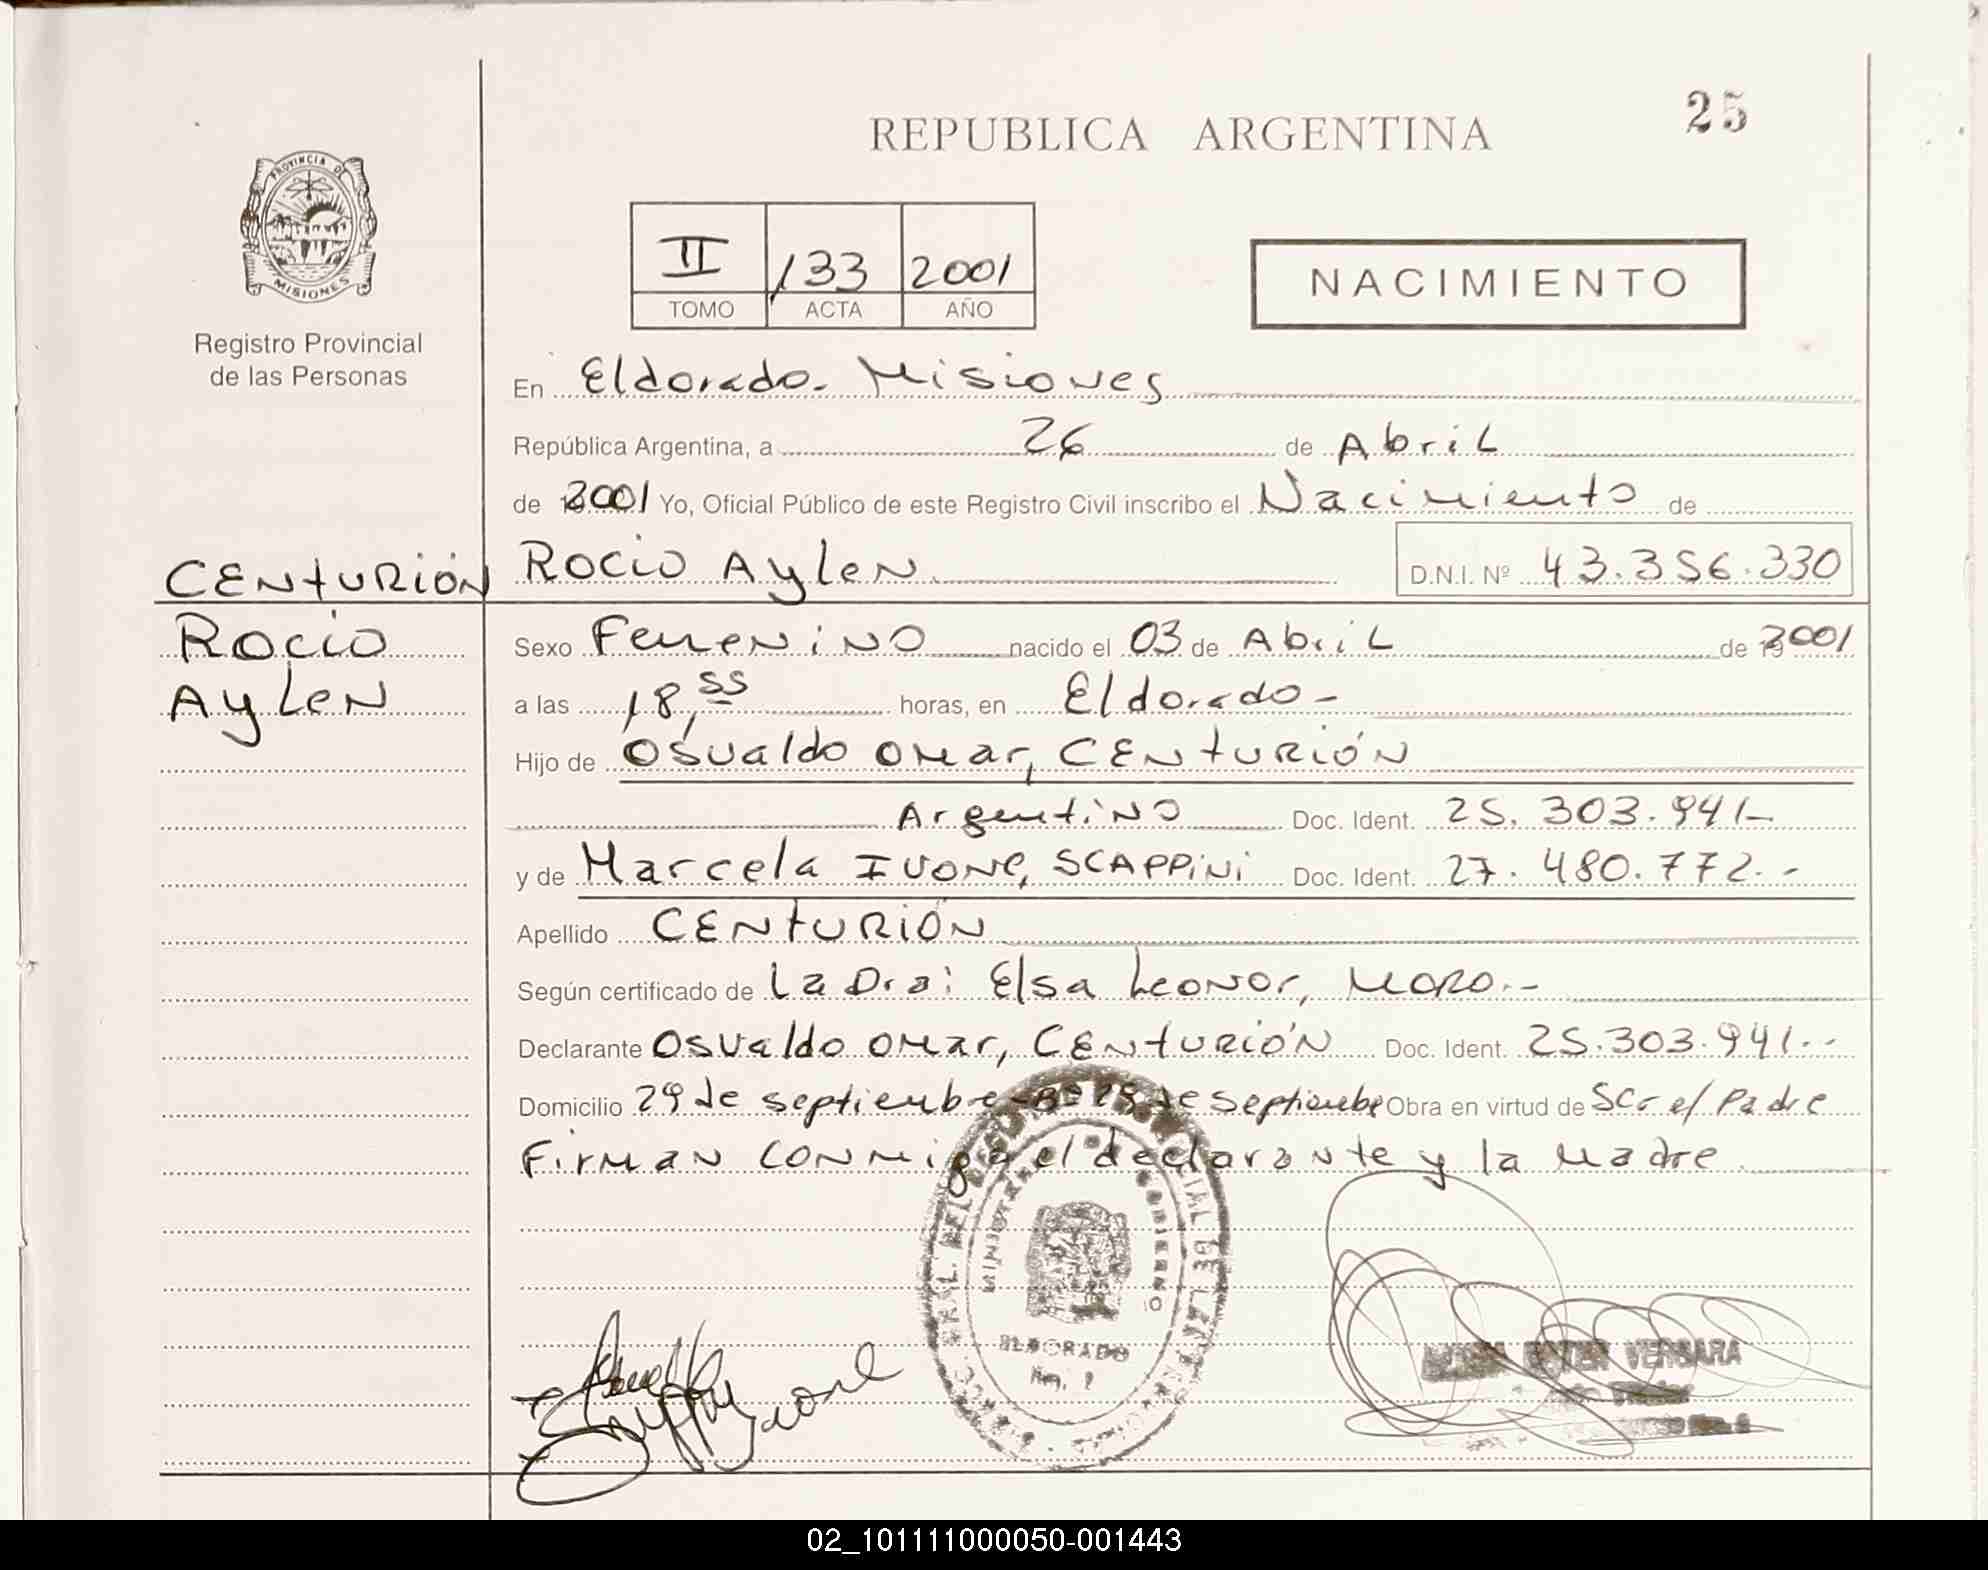 25
REPUBLICA ARGENTINA
PROVINCIA DE
MISIONES
Registro Provincial
de las Personas
II 133 2001
TOMO ACTA AÑO
NACIMIENTO
En Eldorado. Misiones
República Argentina, a 26 de Abril
de 2001 Yo, Oficial Público de este Registro Civil inscribo el Nacimiento de
CENTURIÓN
Rocio
Aylen
Rocio Aylen D.N.I. Nº 43.356.330
Sexo Femenino nacido el 03 de Abril de 2001
a las 18,55 horas, en Eldorado-
Hijo de Osvaldo Omar, CENTURIÓN
Argentino Doc. Ident. 25.303.941-
y de Marcela Ivone, SCAPPINI Doc. Ident. 27.480.772.-
Apellido CENTURIÓN
Según certificado de La Dra: Elsa Leonor, MORO.-
Declarante Osvaldo Omar, CENTURIÓN Doc. Ident. 25.303.941.-
Domicilio 29 de septiembre - Bº 29 de septiembre Obra en virtud de Ser el Padre
Firman conmigo el declarante y la madre
MINISTERIO DE GOBIERNO
ELDORADO
ESTER VERGARA
02_101111000050-001443